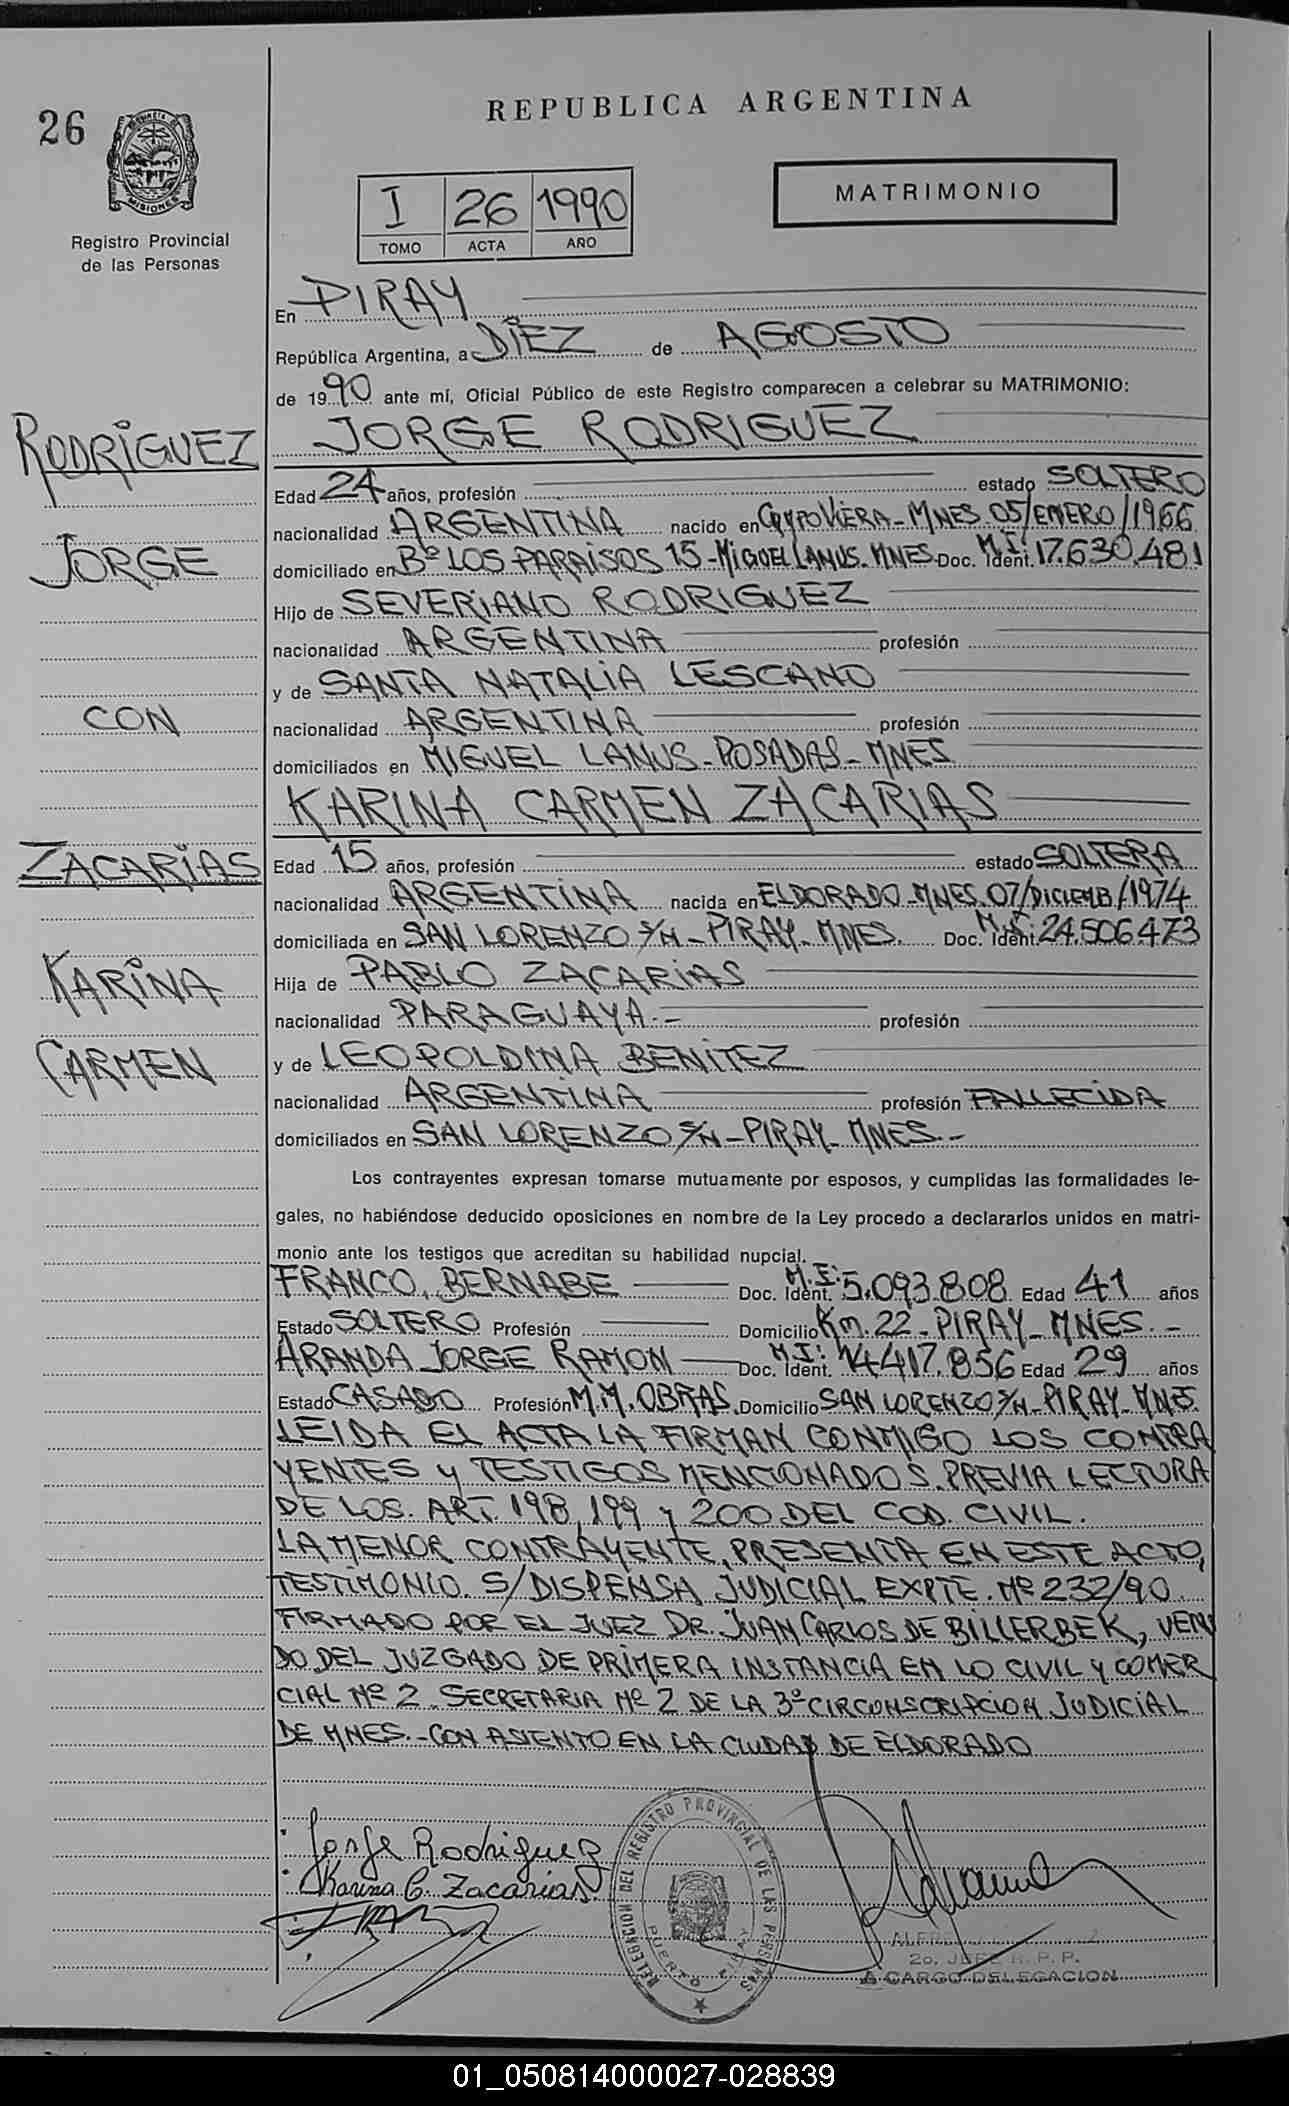 REPUBLICA ARGENTINA
26
PROVINCIA DE
MISIONES
MATRIMONIO
I 26 1990
TOMO ACTA AÑO
Registro Provincial
de las Personas
En PIRAY
República Argentina, a DIEZ de AGOSTO
de 1990 ante mí, Oficial Público de este Registro comparecen a celebrar su MATRIMONIO:
RODRIGUEZ
JORGE
CON
ZACARIAS
KARINA
CARMEN
JORGE RODRIGUEZ
Edad 24 años, profesión estado SOLTERO
nacionalidad ARGENTINA nacido en CAMPO VIERA-MNES. 05/ENERO/1966
domiciliado en Bº LOS PARAISOS 15-MIGUEL LANUS. MNES. Doc. Ident. M.I. 17.630.481
Hijo de SEVERIANO RODRIGUEZ
nacionalidad ARGENTINA profesión
y de SANTA NATALIA LESCANO
nacionalidad ARGENTINA profesión
domiciliados en MIGUEL LANUS-POSADAS-MNES
KARINA CARMEN ZACARIAS
Edad 15 años, profesión estado SOLTERA
nacionalidad ARGENTINA nacida en ELDORADO-MNES. 07/DICIEMB/1974
domiciliada en SAN LORENZO S/N-PIRAY-MNES. Doc. Ident. M.I: 24.506.473
Hija de PABLO ZACARIAS
nacionalidad PARAGUAYA.- profesión
y de LEOPOLDINA BENITEZ
nacionalidad ARGENTINA profesión FALLECIDA
domiciliados en SAN LORENZO S/N-PIRAY-MNES.-
Los contrayentes expresan tomarse mutuamente por esposos, y cumplidas las formalidades le-
gales, no habiéndose deducido oposiciones en nombre de la Ley procedo a declararlos unidos en matri-
monio ante los testigos que acreditan su habilidad nupcial.
FRANCO, BERNABE Doc. Ident. M.I: 5.093.808 Edad 41 años
Estado SOLTERO Profesión Domicilio Km. 22-PIRAY-MNES.-
ARANDA JORGE RAMON Doc. Ident. M.I: 14.417.856 Edad 29 años
Estado CASADO Profesión M.M. OBRAS. Domicilio SAN LORENZO S/N-PIRAY-MNES.
LEIDA EL ACTA LA FIRMAN CONMIGO LOS CONTRA
YENTES y TESTIGOS MENCIONADOS. PREVIA LECTURA
DE LOS. ART. 198, 199 y 200 DEL COD. CIVIL.
LA MENOR CONTRAYENTE, PRESENTA EN ESTE ACTO,
TESTIMONIO. S/DISPENSA JUDICIAL EXPTE. Nº 232/90
FIRMADO POR EL JUEZ DR. JUAN CARLOS DE BILLERBEK, VENI
DO DEL JUZGADO DE PRIMERA INSTANCIA EN LO CIVIL y COMER
CIAL Nº 2. SECRETARIA Nº 2 DE LA 3º CIRCONSCRIPCION JUDICIAL
DE MNES.-CON ASIENTO EN LA CIUDAD DE ELDORADO
Jorge Rodriguez
Karina C. Zacarias
DELEGACION DEL REGISTRO PROVINCIAL DE LAS PERSONAS
PUERTO PIRAY
2o. JEFE R. P. P.
A CARGO DELEGACION
01_050814000027-028839